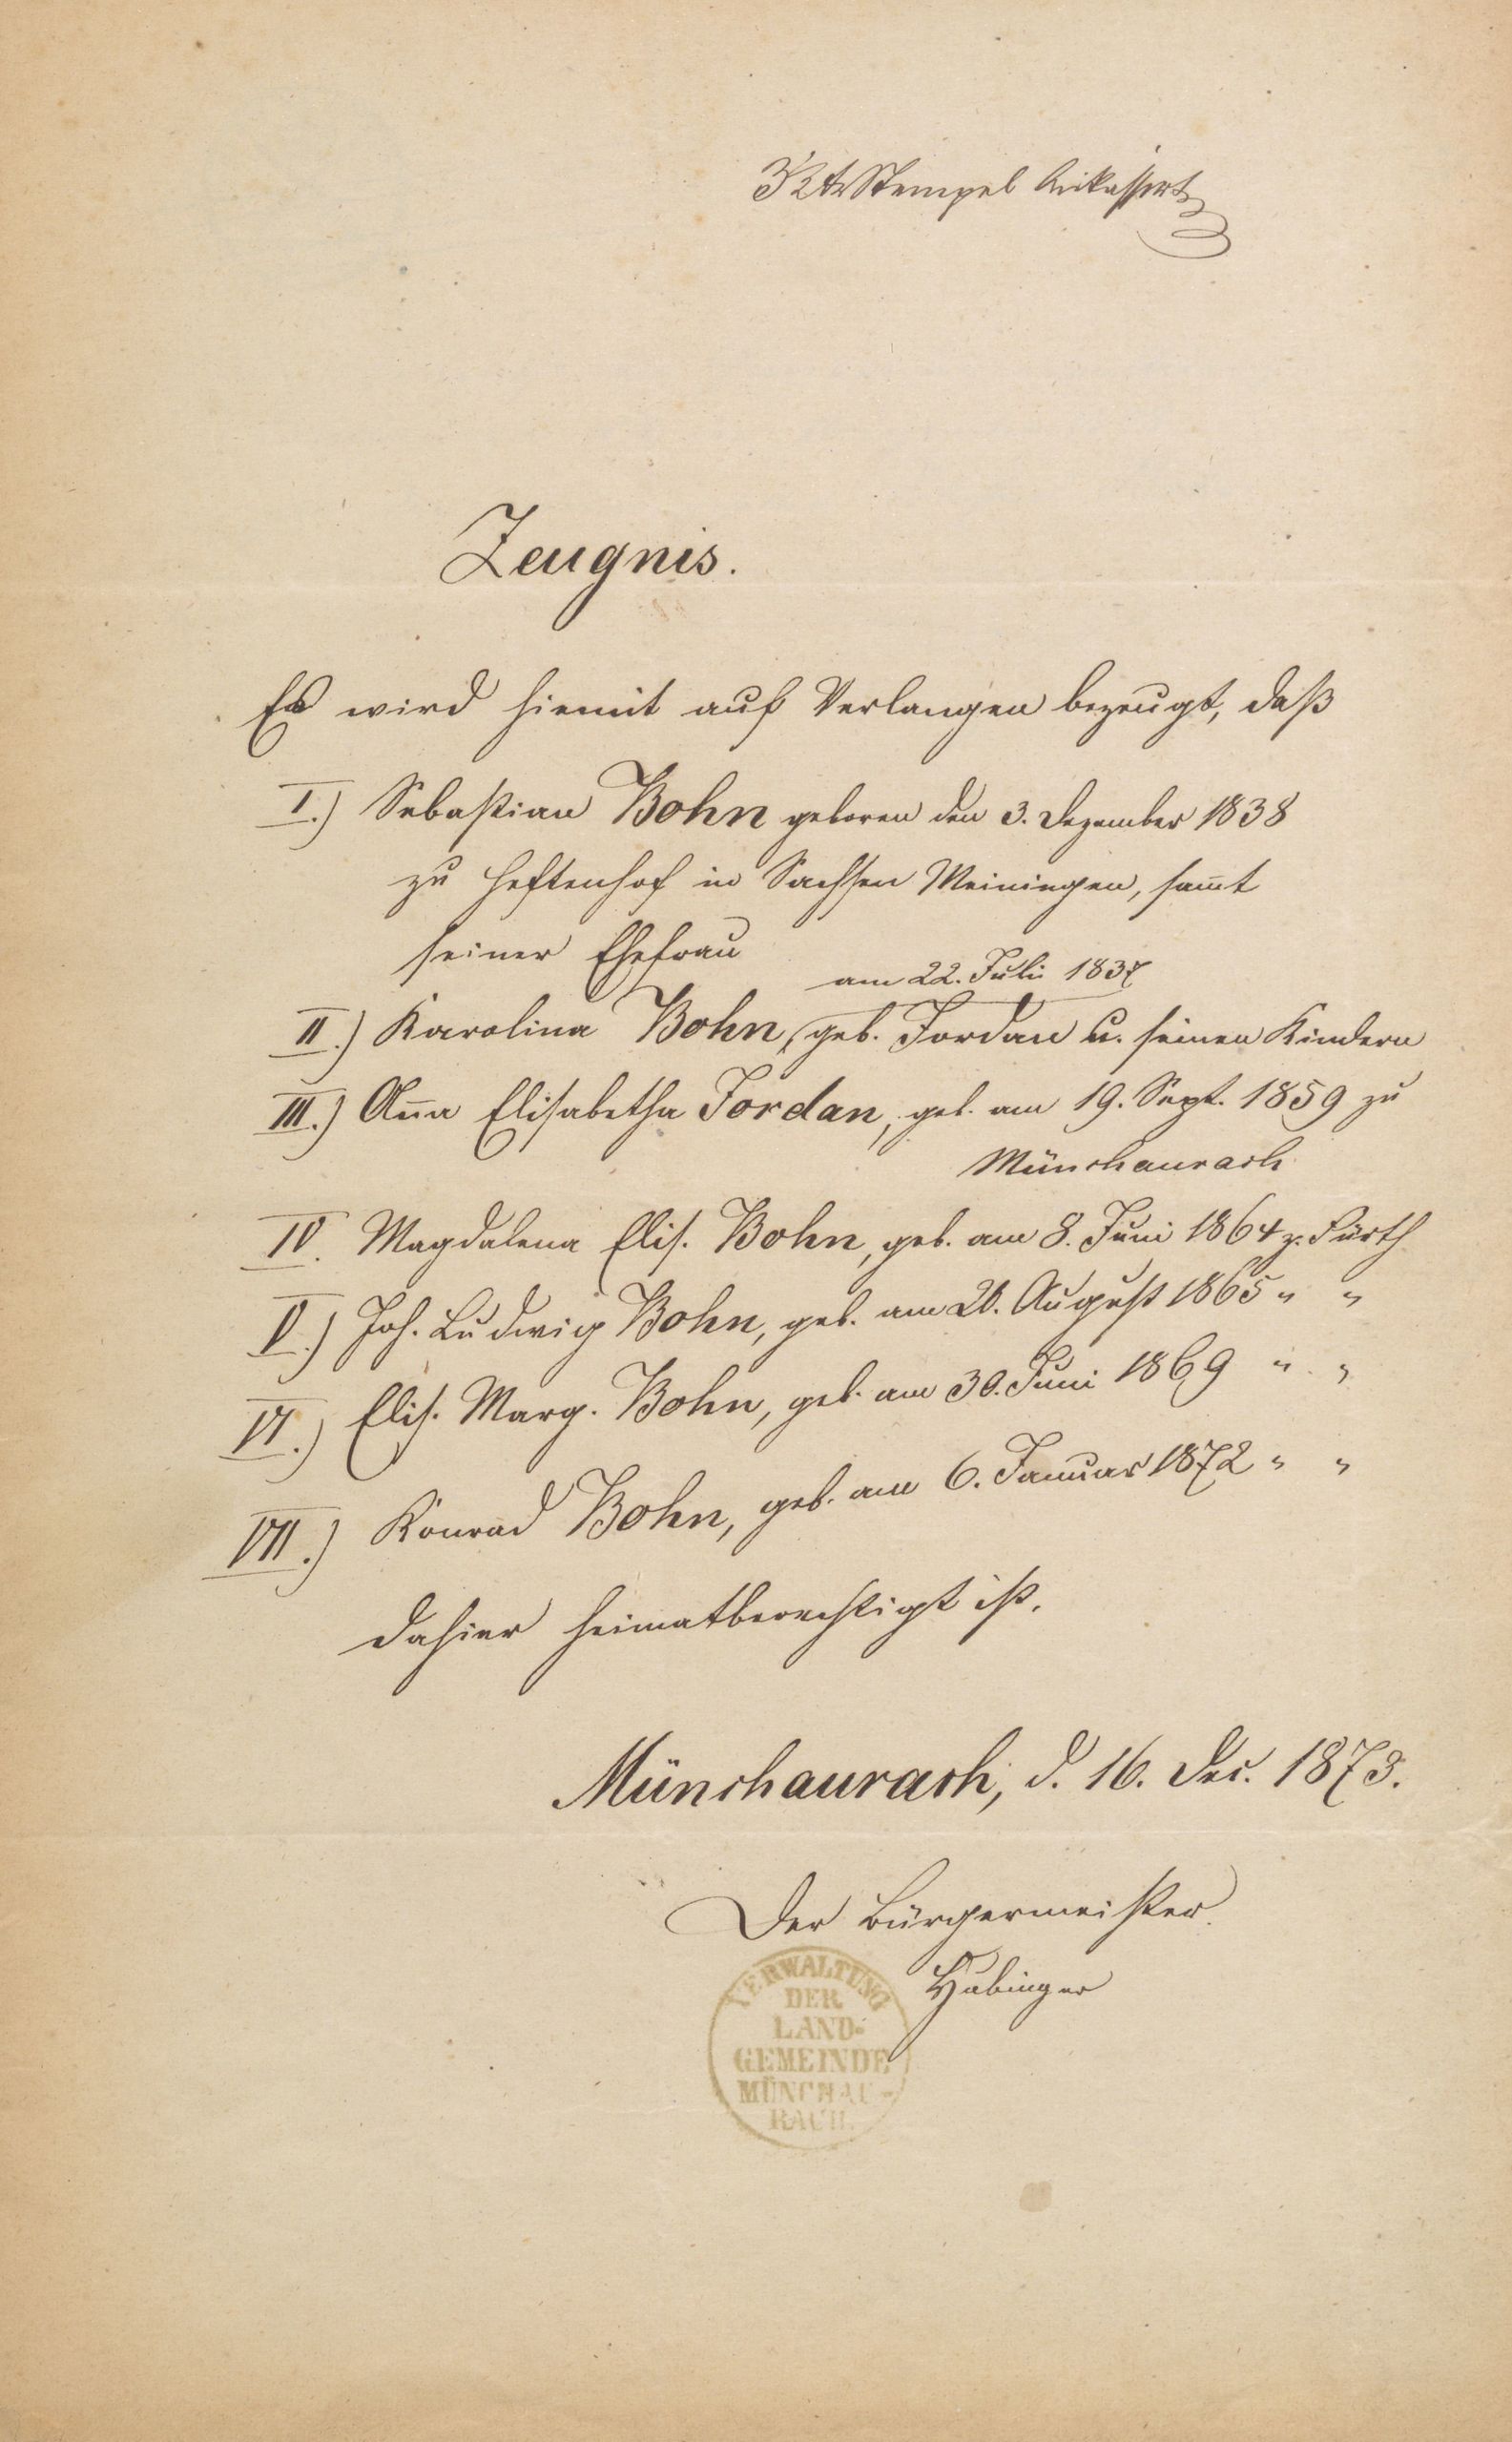 3 Kr Stempel kassiert
Zeugnis.
Es wird hiemit auf Verlangen bezeugt, daß
I.) Sebastian Bohn geboren den 3. Dezember 1838
zu Heftenhof in Sachsen Meiningen, sam̄t
seiner Ehefrau
am 22. Juli 1837
II.) Karolina Bohn, geb. Jordan u. seinen Kindern
III.) An̄a Elisabetha Jordan, geb. am 19. Sept. 1859 zu
Münchaurach
IV. Magdalena Elis. Bohn, geb. am 8. Juni 1864 z. Fürth
V.) Joh. Ludwig Bohn, geb. am 28. August 1865 " "
VI.) Elis. Marg. Bohn, geb. am 30. Juni 1869 " "
VII.) Konrad Bohn, geb. am 6. Januar 1872 " "
dahier heimatberechtigt ist.
Münchaurach, d. 16. Dec. 1873.
Der Bürgermeister
Hubinger
VERWALTUNG
DER
LAND-
GEMEINDE
MÜNCHAU-
RACH.